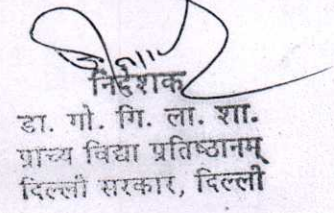 निदेशक
डा. गो. गि. ला. शा.
प्राच्य विद्या प्रतिष्ठानम्
दिल्ली सरकार, दिल्ली